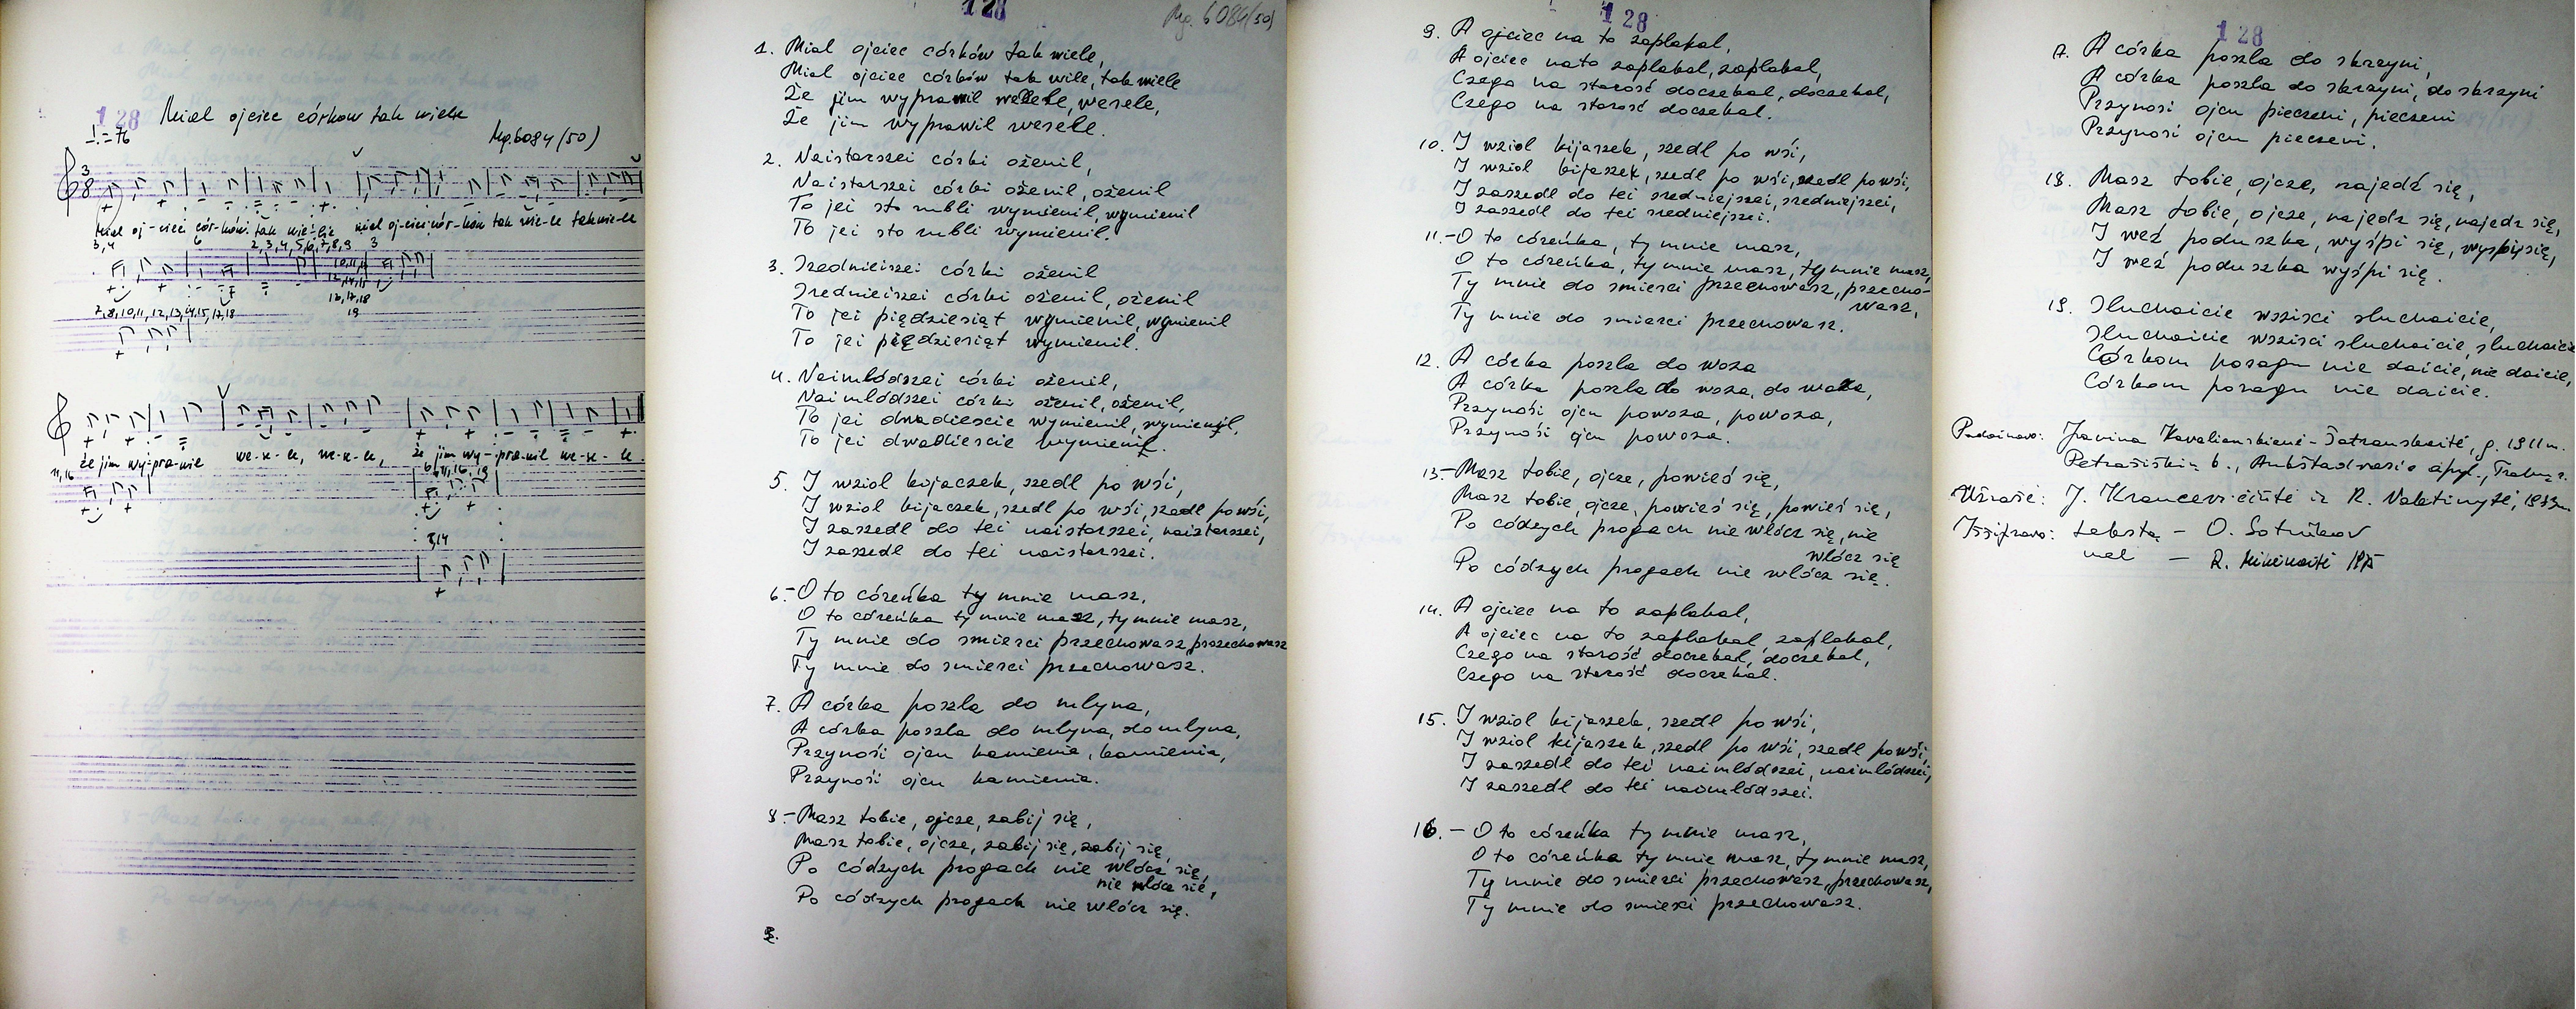 128
Miał ojciec córkow tak wiele
♩.=76
Mg.6084/50)
3
8
Miał oj-ciec cór-ków tak wie-le miał oj-ciec cór-ków tak wie-le tak wie-le
3,4
6
2,3,4,5,6,7,8,9
3
7,8,10,11,12,13,14,15,17,18
19
że jim wy-pra-wił we-se-le, we-se-le, że jim wy-pra-wił we-se-le.
11,16
128
Mg. 6084(50)
1. Miał ojciec córków tak wiele,
Miał ojciec córków tak wile, tak wiele
Że jim wyprawił wesele, wesele,
Że jim wyprawił wesele.
2. Naistarszei córki ożenił,
Naistarszei córki ożenił, ożenił
To jei sto rubli wymienił, wymienił
To jei sto rubli wymienił.
3. Sredniejszei córki ożenił
Sredniejszei córki ożenił, ożenił
To jei piędziesiąt wymienił, wymienił
To jei piędziesiąt wymienił.
4. Naimłódszei córki ożenił,
Naimłódszei córki ożenił, ożenił,
To jei dwadiescie wymienił, wymienił,
To jei dwadiescie wymienił.
5. I wzioł bojaczek, szedł po wśi,
I wzioł bijaczek, szedł po wśi, szedł po wśi,
I zaszedł do tei naistarszei, naistarszei,
I zaszedł do tei naistarszei.
6.-O to córeńka ty mnie masz,
O to córeńka ty mnie masz, ty mnie masz,
Ty mnie do smierci przechowasz, przechowasz
Ty mnie do smierci przechowasz.
7. A córka poszła do młyna,
A córka poszła do młyna, do młyna,
Przynośi ojcu kamienia, kamienia,
Przynośi ojcu kamienia.
8.-Masz tobie, ojcze, zabij się,
Masz tobie, ojcze, zabij się, zabij się,
Po códzych progach nie włócz się,
nie włócz się,
Po códzych progach nie włócz się.
9.
128
9. A ojciec na to zapłakał,
A ojciec nato zapłakał, zapłakał,
Czego na starość doczekał, doczekał,
Czego na starość doczekał.
10. I wzioł kijaszek, szedł po wśi,
I wzioł bijaszek, szedł po wśi, szedł po wśi,
I zaszedł do tei sredniejszei, sredniejszei,
I zaszedł do tei sredniejszei.
11.-O to córeńka, ty mnie masz,
O to córeńka, ty mnie masz, ty mnie masz,
Ty mnie do smierci przechowasz, przecho-
wasz,
Ty mnie do smierci przechowasz.
12. A córka poszła do woza
A córka poszła do woza, do woza,
Przynośi ojcu powoza, powoza,
Przynośi ojcu powoza.
13.-Masz tobie, ojcze, powieś się,
Masz tobie, ojcze, powieś się, powieś się,
Po códzych progach nie włócz się, nie
włócz się
Po códzych progach nie włócz się.
14. A ojciec na to zapłakał,
A ojciec na to zapłakał, zapłakał,
Czego na starość doczekał, doczekał,
Czego na starość doczekał.
15. I wzioł kijaszek, szedł po wśi,
I wzioł kijaszek, szedł po wśi, szedł po wśi,
I zaszedł do tei naimłódszei, naimłódszei,
I zaszedł do tei naimłódszei.
16.- O to córeńka ty mnie masz,
O to córeńka ty mnie masz, ty mnie masz,
Ty mnie do smierci przechowasz, przechowasz,
Ty mnie do smierci przechowasz.
128
7. A córka poszła do skrzyni,
A córka poszła do skrzyni, do skrzyni
Przynosi ojcu pieczeni, pieczeni
Przynosi ojcu pieczeni.
18. Masz tobie, ojcze, najedź się,
Masz tobie, ojcze, najedz się, najedz się,
I weź poduszka, wyśpi się, wyśpij się,
I weź poduszka wyśpi się.
19. Słuchaicie wszisci słuchaicie,
Słuchaicie wszisci słuchaicie, słuchaicie
Córkom posagu nie daicie, nie daicie,
Córkom posagu nie daicie.
Padainavo: Janina Kavalianskienė-Šatranskaitė, g. 1911 m.
Petrašiškių k., Aukštadvario apyl., Trakų r.
Užrašė: J. Krancevičiūtė ir R. Valatinytė, 1973 m.
Iššifravo: tekstą - O. Sotnikov
mel - R. Mikėnaitė 1975